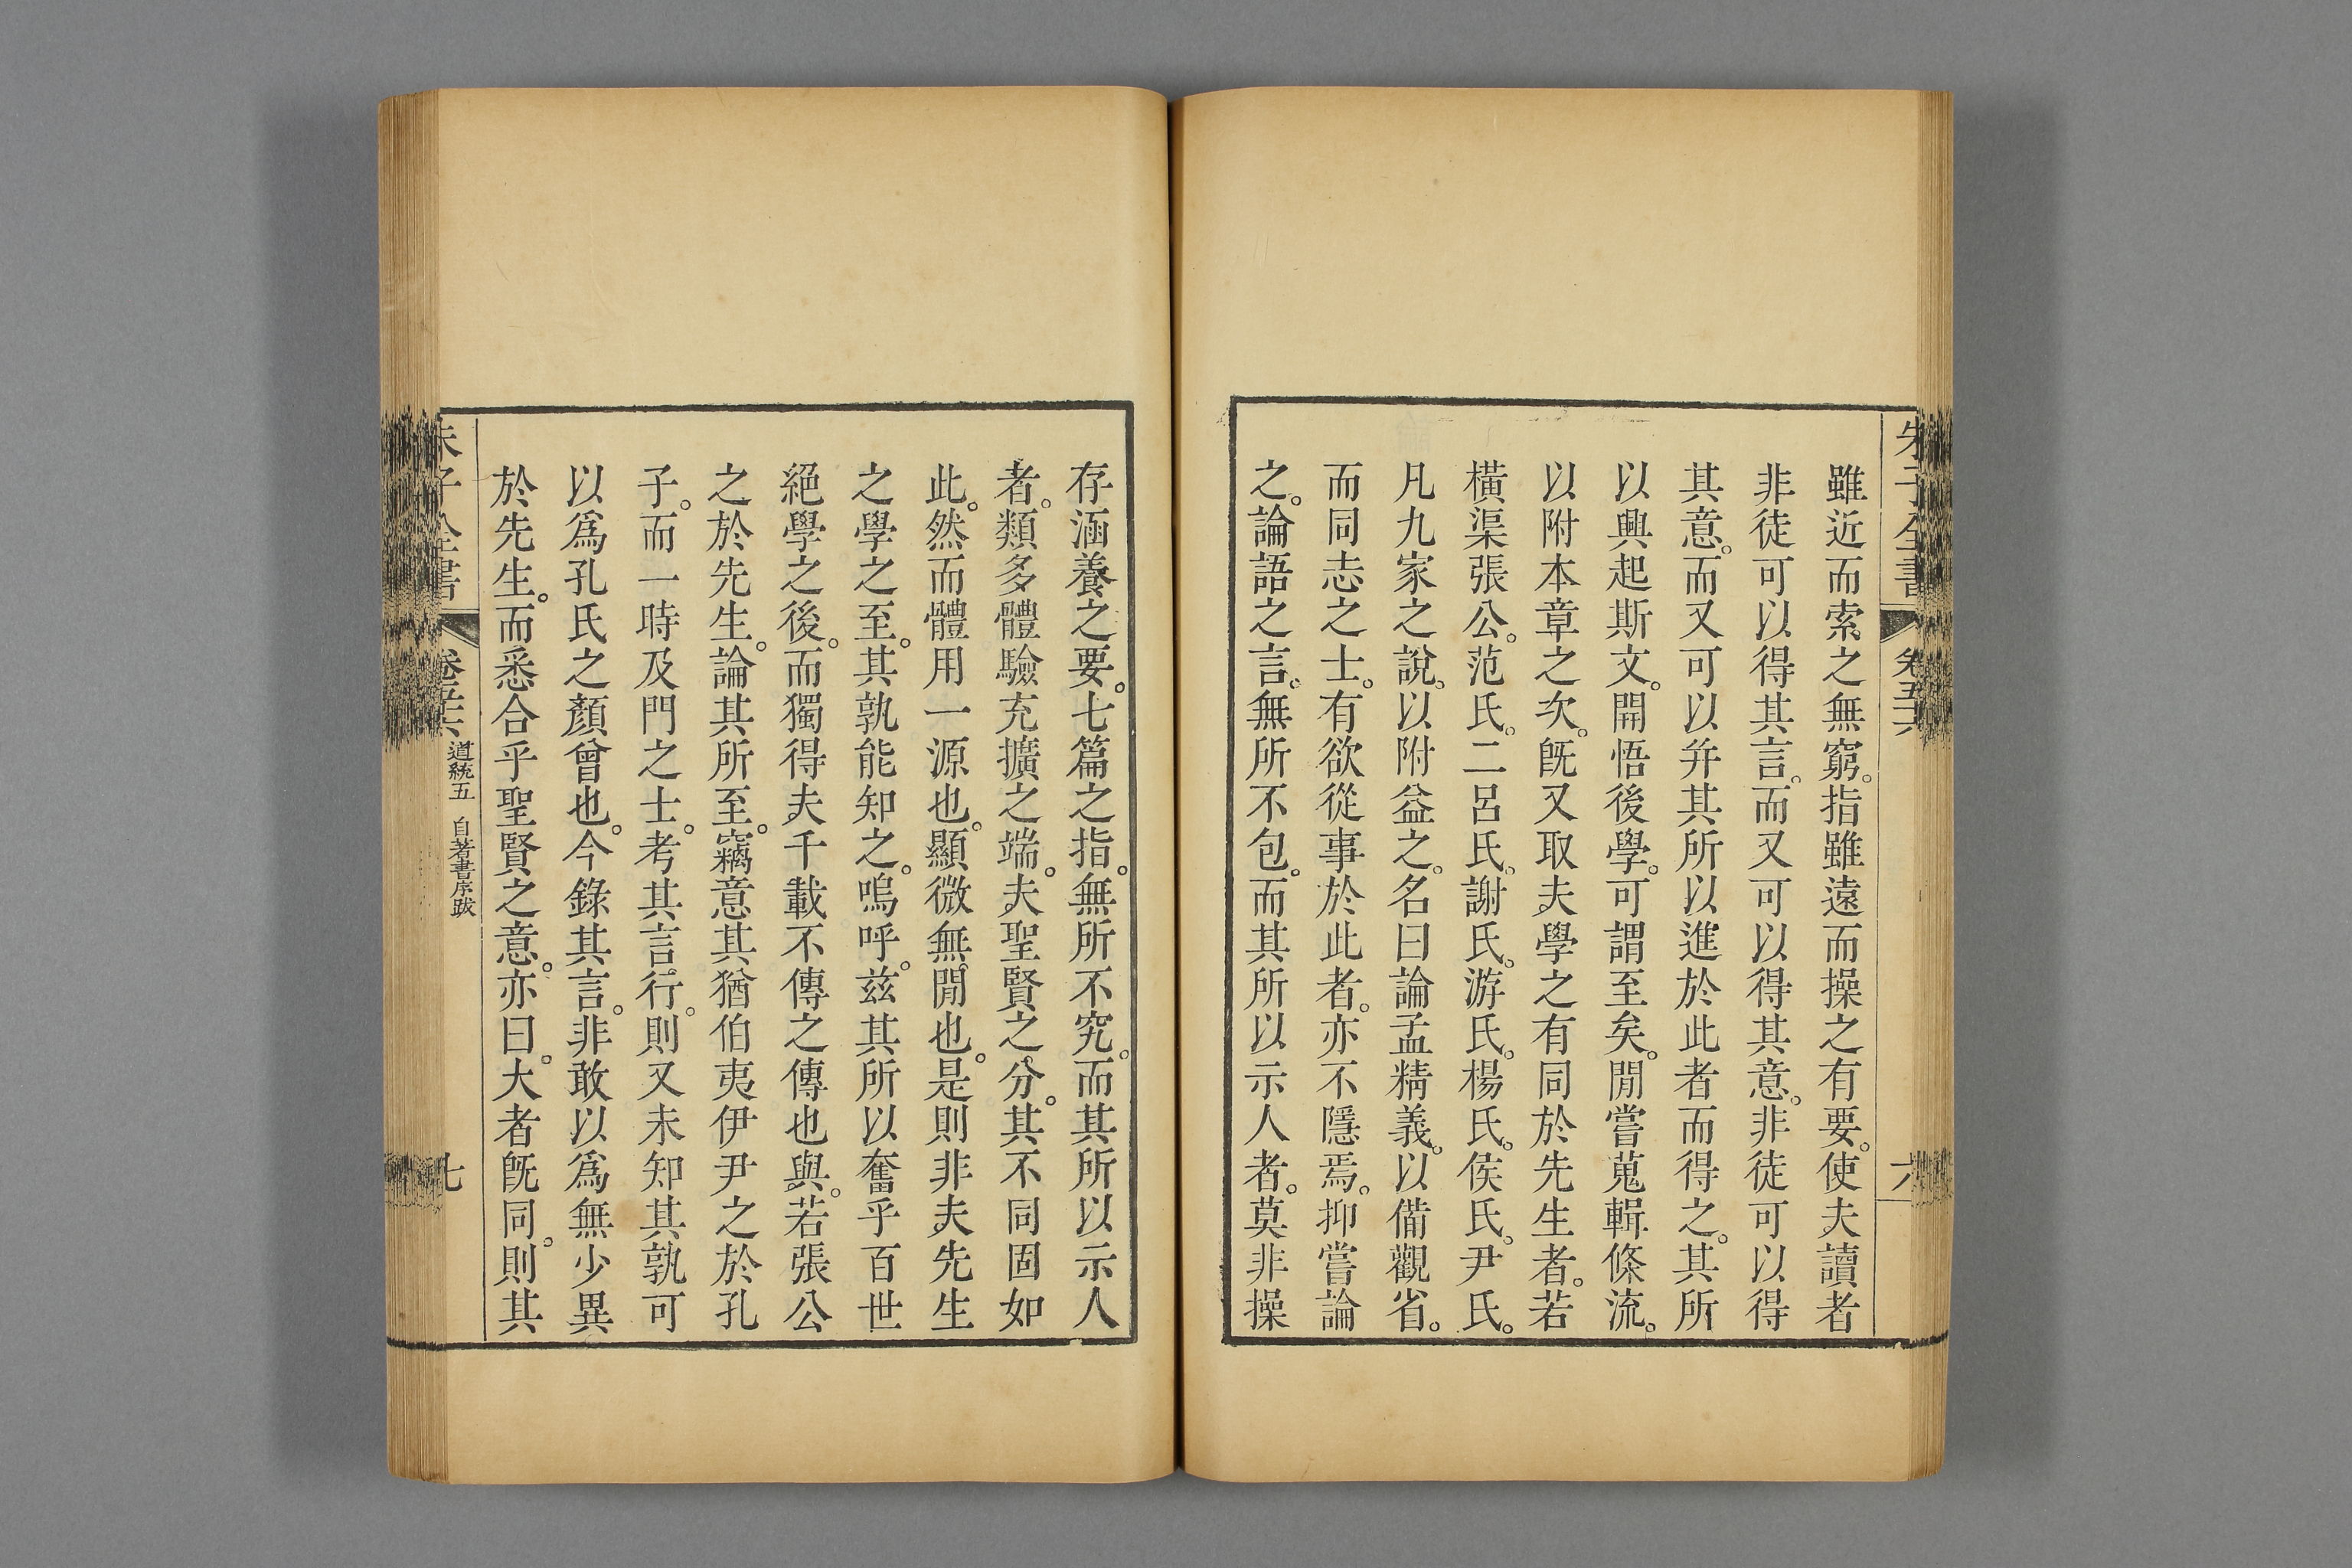 朱子全書 卷五十六 六
雖近而索之無窮。指雖遠而操之有要。使夫讀者
非徒可以得其言。而又可以得其意。非徒可以得
其意。而又可以幷其所以進於此者而得之。其所
以興起斯文。開悟後學。可謂至矣。閒嘗蒐輯條流。
以附本章之次。旣又取夫學之有同於先生者。若
橫渠張公。范氏。二呂氏。謝氏。游氏。楊氏。侯氏。尹氏。
凡九家之說。以附益之。名曰論孟精義。以備觀省。
而同志之士。有欲從事於此者。亦不隱焉。抑嘗論
之。論語之言。無所不包。而其所以示人者。莫非操
存涵養之要。七篇之指。無所不究。而其所以示人
者。類多體驗充擴之端。夫聖賢之分。其不同固如
此。然而體用一源也。顯微無閒也。是則非夫先生
之學之至。其孰能知之。嗚呼。茲其所以奮乎百世
絕學之後。而獨得夫千載不傳之傳也與。若張公
之於先生。論其所至。竊意其猶伯夷伊尹之於孔
子。而一時及門之士。考其言行。則又未知其孰可
以爲孔氏之顏曾也。今錄其言。非敢以爲無少異
於先生。而悉合乎聖賢之意。亦曰。大者旣同。則其
朱子全書 卷五十六 道統五 自著書序跋 七